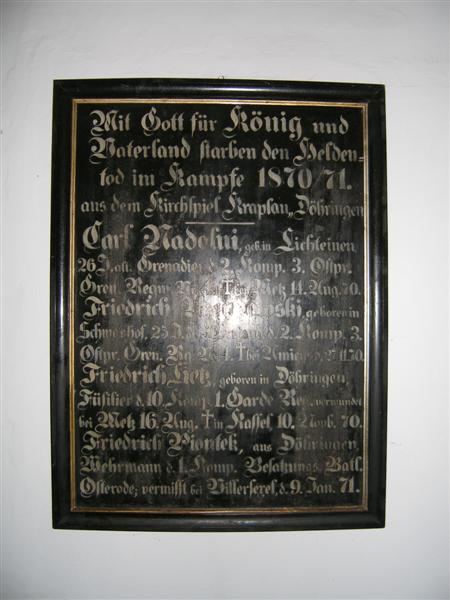 Mit Gott für König und
Vaterland starben den Helden=
tod im Kampfe 1870/71.
aus dem Kirchspiel Kraplau„Döhringen
Carl Nadolni, geb. in Lichteinen
26 J. alt. Grenadier d. 2. Komp. 3. Ostpr.
Gren. Regim. No. 4. † bei Metz 14. Aug. 70.
Friedrich geboren in
25 J. d. 2. Komp. 3.
Ostpr. Gren. Rg. No 4. † bei Amiens d. 27.11.70.
Friedrich Lietz, geboren in Döhringen,
Füsilier d. 10. Komp. 1. Garde Reg. verwundet
bei Metz 16. Aug. † in Kassel 10. Novb. 70.
Friedrich Piontek, aus Döhringen,
Wehrmann d. 1. Komp. Besatzungs. Batl.
Osterode; vermißt bei Villersexel, d. 9. Jan. 71.